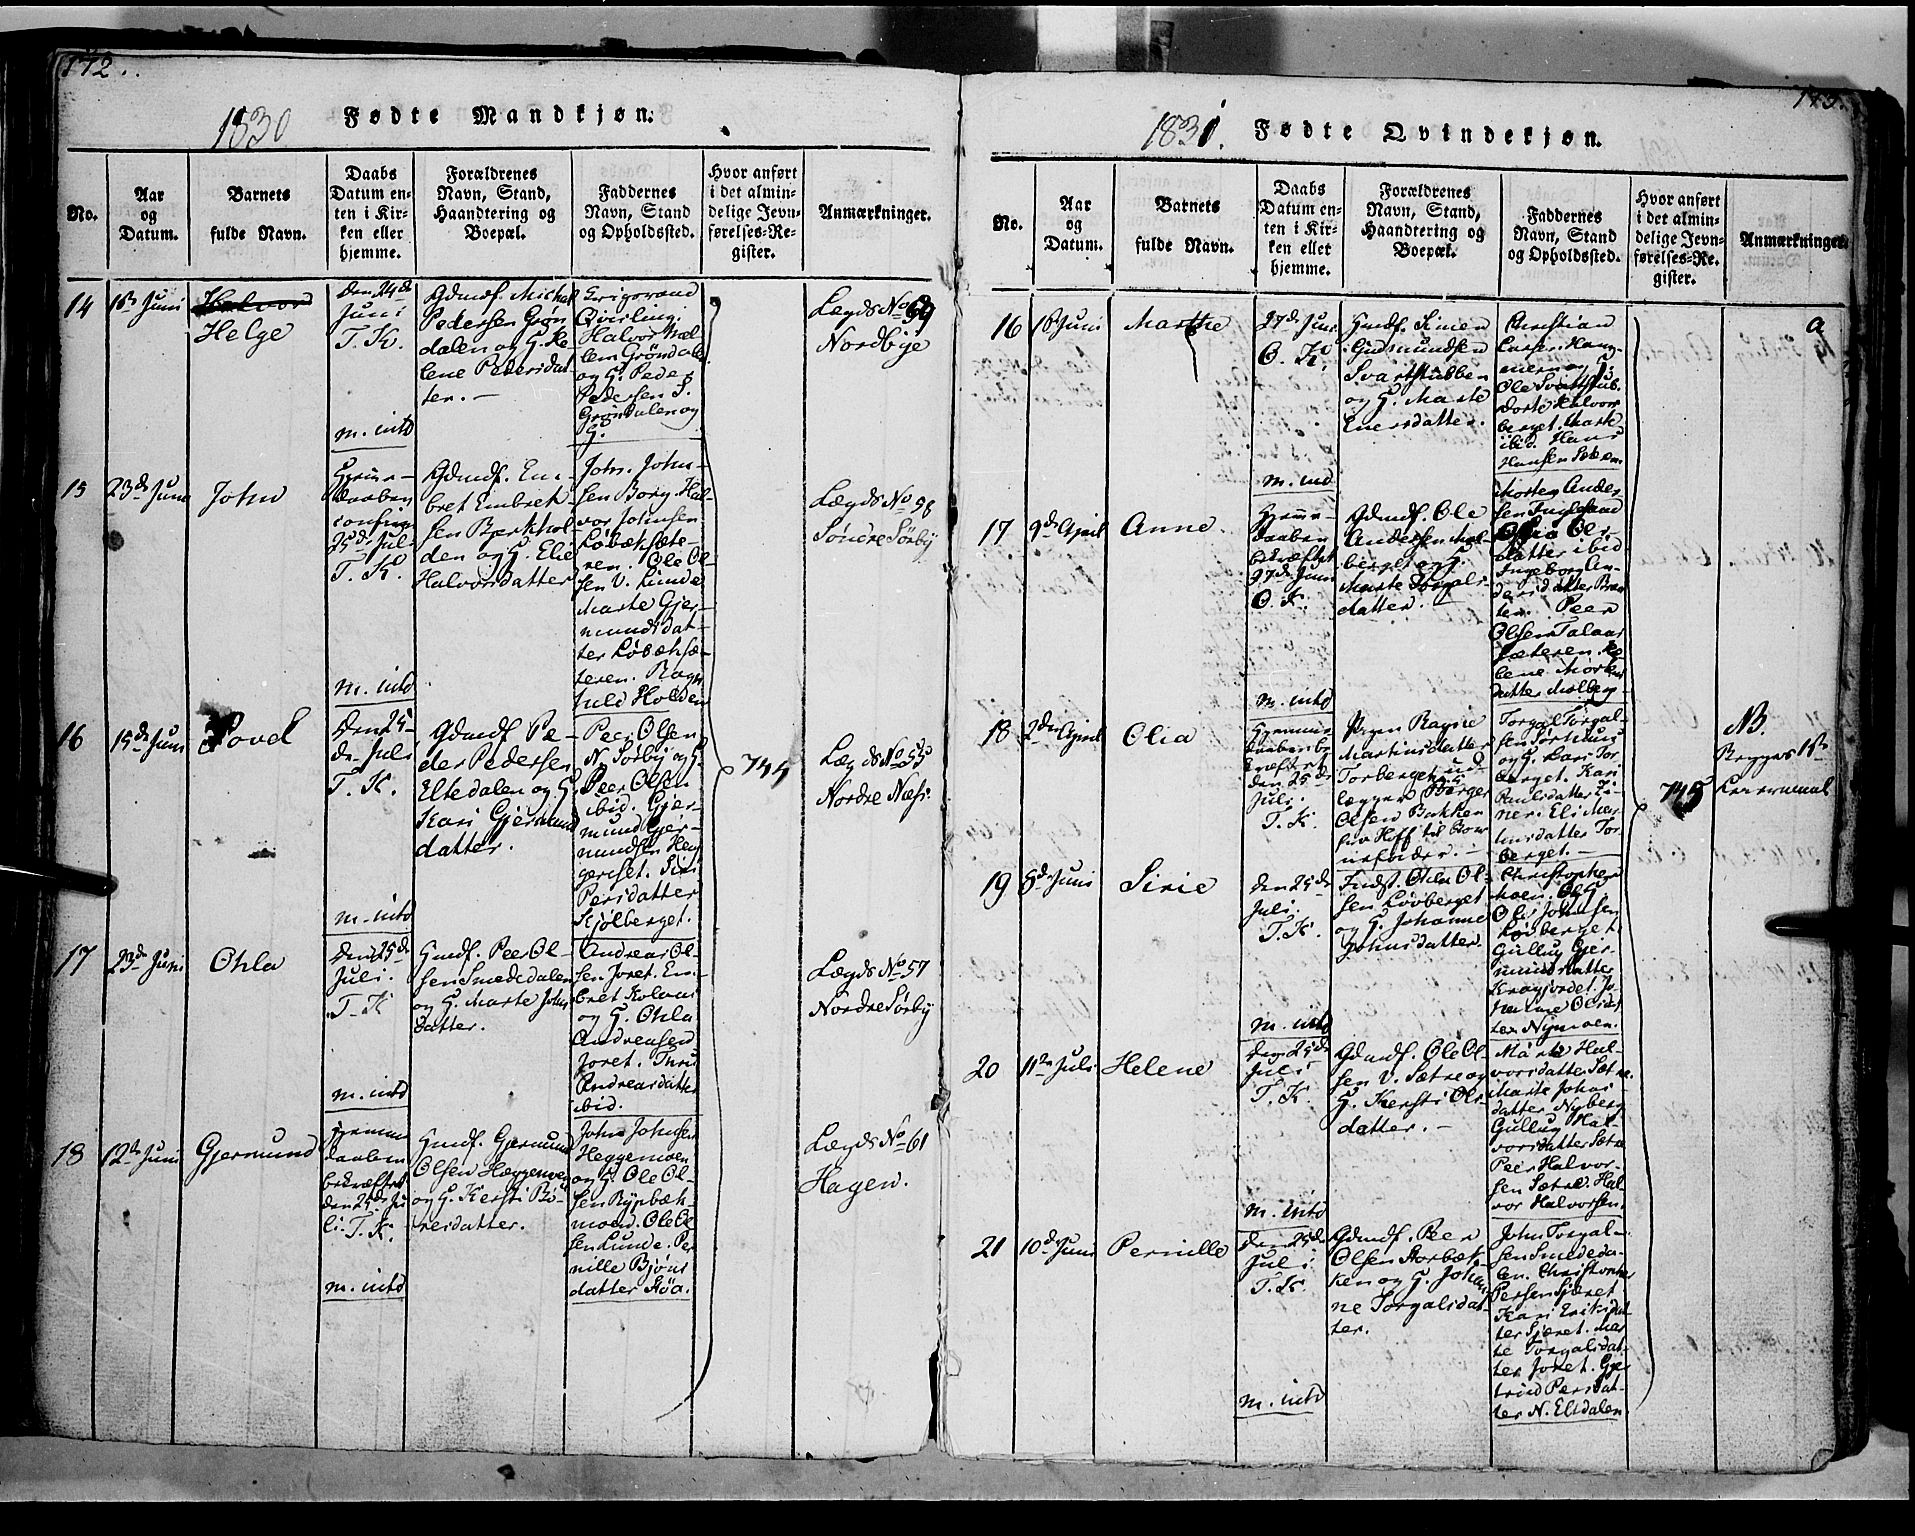 172.
1830 Fødte Mandkjøn.
No.
Aar
og
Datum.
Barnets
fulde Navn.
Daabs
Datum en-
ten i Kir-
ken eller
hjemme.
Forældrenes
Navn, Stand,
Haandtering og
Boepæl.
Faddernes
Navn, Stand
og Opholdssted.
Hvor anført
i det almin-
delige Jevn-
førelses-Re-
gister.
Anmærkninger.
14
16de Juni
Halvor
Helge
Den 24de
Juni
T. K.
m. intd
Gdmdf. Michel
Pedersen Grøn
dalen og G. He
lene Pedersdat
ter. —
Qvisling.
Halvor
og G. Peder
Pedersen S.
Grøndalen og
G.
Lægds No 69
Nordbye
15
23de Juni
John
Hjemme-
daaben
25de Jul-
T. K.
m. intd
Gdmdf. Em-
bret Embret-
sen Bjerkhol
den og G. Elie
Halvorsdatter
John. John-
sen Borg. Hal-
vor Johnsen
Løbæksæte-
ren. Ole Ol-
sen V. Lunde
Marte Gjer-
mundsdat-
ter Løbæksæ-
teren. Ragn
hild Holden
Lægds No 58
Søndre Sørby
16
15de Juni
Povel
Den 25-
de Juli
T. K.
m. intd
Gdmdf. Pe-
der Pedersen
Eltedalen og G.
Kari Gjermund
datter.
Peer Olsen
N. Sørby og G.
Peer Olsen
ibid. Gjer-
mund Gjer-
mundsen Heg
geriset. Siri
Persdatter
Kjølberget.
744
Lægds No 55
Nordre Næs.
17
23de Juni
Ohla
Den 25de
Juli.
T. K
m. intd
Gmdf. Peer Ol-
sen Smededalen
og G. Marte Johns
datter.
Andreas Ol-
sen Joret. Em-
bret Kolaas
og G. Ohla
Andreasen
Joret.
Andreasdatter
ibid.
Lægds No 57
Nordre Sørby
18
12te Juni
Gjermund
Hjemme
daaben
bekræftet
den 25de Ju
li. T. K.
m. intd
Gmdf. Gjermund
Olsen Heggemoen
og G. Kersti Bø-
resdatter.
John Johnsen
Heggemoen
og G. Ole Ol-
sen Rypbæk-
moen. Ole Ol
sen Lunde. Per
nille Bjøns
datter Støa.
Lægds No 61
Hagen.
173.
1831. Fødte Qvindekjøn.
No.
Aar
og
Datum.
Barnets
fulde Navn.
Daabs
Datum en-
ten i Kir-
ken eller
hjemme.
Forældrenes
Navn, Stand,
Haandtering og
Boepæl.
Faddernes
Navn, Stand
og Opholdssted.
Hvor anført
i det almin-
delige Jevn-
førelses-Re-
gister.
Anmærkninger.
16
16 Juni
Marthe
27de Juni
O. K.
m. intd
Gmdf. Simen
Gudmundsen
Svartstubben
og G. Marte
Enersdatter.
Christian
Larsen
og G.
Ole Svartstub.
Dorte Halvor
berget. Marte
ibid. Hans
Hansen
17
9de April
Anne
Hjemme-
daaben
bekræftet
27de Juni
O. K.
m. intd
Gdmdf. Ole
Andersen Mol-
berget og G.
Marte Torgals-
datter.
Morten Ander
sen
Ols-
datter ibid
Ingeborg An-
dersdatter
Peer
Olsen Talaas
sæteren. He
lene Mortens
datter Molberg-
18
2de April
Olia
Hjemme
daaben be
kræftet
den 25de
Juli.
T. K.
Pigen Ragne
Martinsdatter
Torberget ud-
lægger Børger
Olsen Bakken
til Barne
fader. —
Torgal Torgal-
sen Sørhuus
og G. Kari Tor
berget. Kari
Paulsdatter
Eli Mar-
tinsdatter Tor-
berget. —
NB.
1ste
Leiermaal
19
8de Juni
Sirie
Den 25de
Juli.
T. K.
m. intd
Indst. Ohla Ol-
sen Løvberget
og G. Johanne
Johnsdatter.
Christopher
Ole Johnsen
Løvberget.
Gullug Gjer-
mundsdatter
Johanne Olsdat
ter Nymoen.
745
20
11te Juli
Helene
Den 25de
Juli
T. K.
m. intd
Gdmdf. Ole Ol-
sen V. Sætre og
G. Kersti Ols-
datter. —
Marte Hal-
vorsdatter Sætre.
Marte Johns
datter Nyberg
Gullug Hal-
vorsdatter Sætre
Peer Halvor-
sen Sætre. Hal
vor Halvorsen.
21
10de Juni
Pernille
Den 25de
Juli
T. K.
m. intd
Gdmdf. Peer
Olsen Storbæk-
ken og G. Johan
ne Torgalsdat-
ter.
John Torgal-
sen Smededa-
len. Christopher
Persen Sjøret
Kari Eriksdat-
ter Sjøret. Mar
te Torgalsdat-
ter Joret. Gjer
trud Persdat-
ter N. Eltdalen